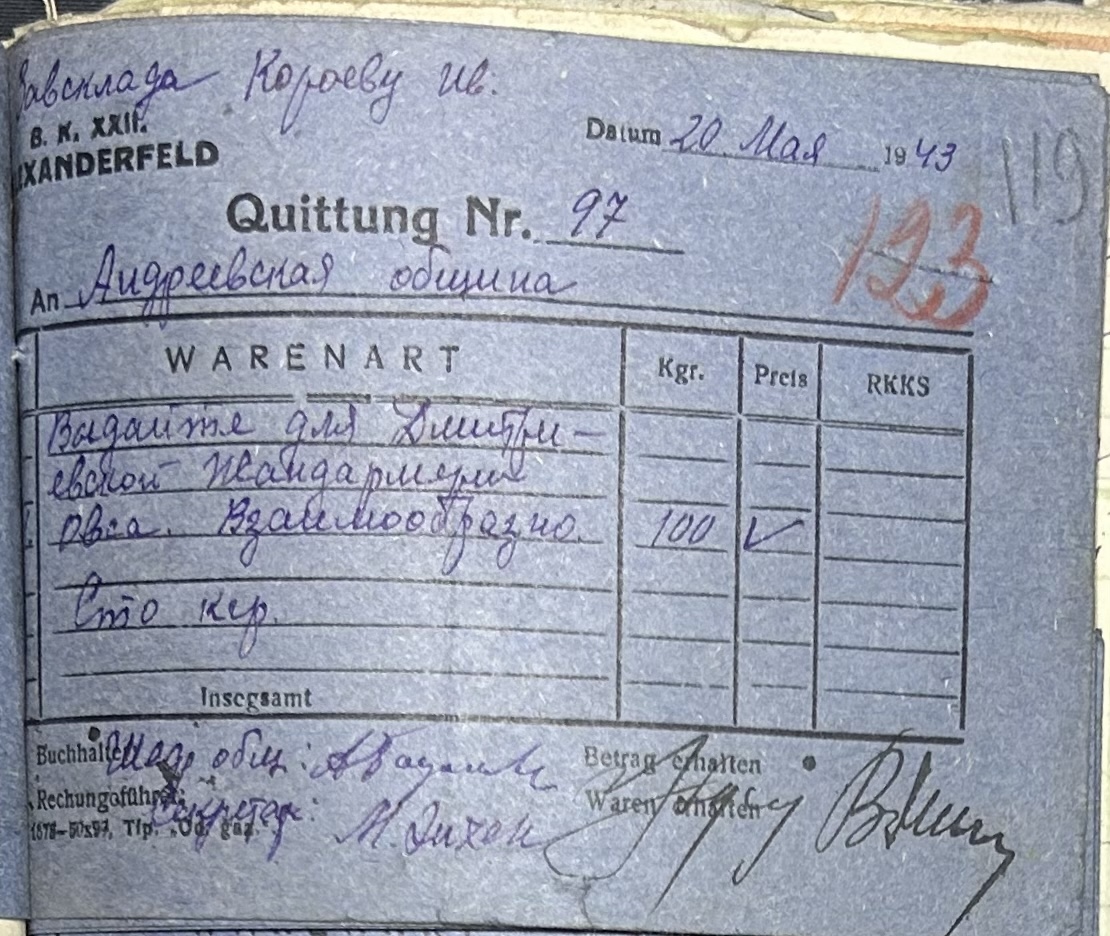 Завсклада Короеву Ив.
B. K. XXII.
XANDERFELD
Datum 20 Мая 1943
119
Quittung Nr. 97
123
An Андреевская община
WARENART Kgr. Preis RKKS
Выдайте для Дмитри-
евской Жандармерии
Овса. Взаимообразно. 100 ✓
Сто кгр.
Insegsamt
Buchhalter общ:
Betrag erhalten
Rechungsführer: Секретарь: М.
Waren erhalten
1678-50x97, Tip. „Od. gaz.